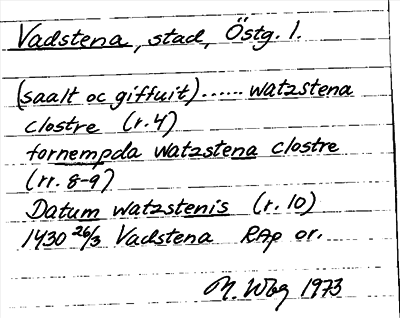 Vadstena, stad, Östg. l.
(saalt oc giffuit)...... watzstena
clostre (r. 4)
fornempda watzstena clostre
(rr. 8-9)
Datum watzstenis (r. 10)
1430 26/3 Vadstena RAp or.
M. Wbg 1973